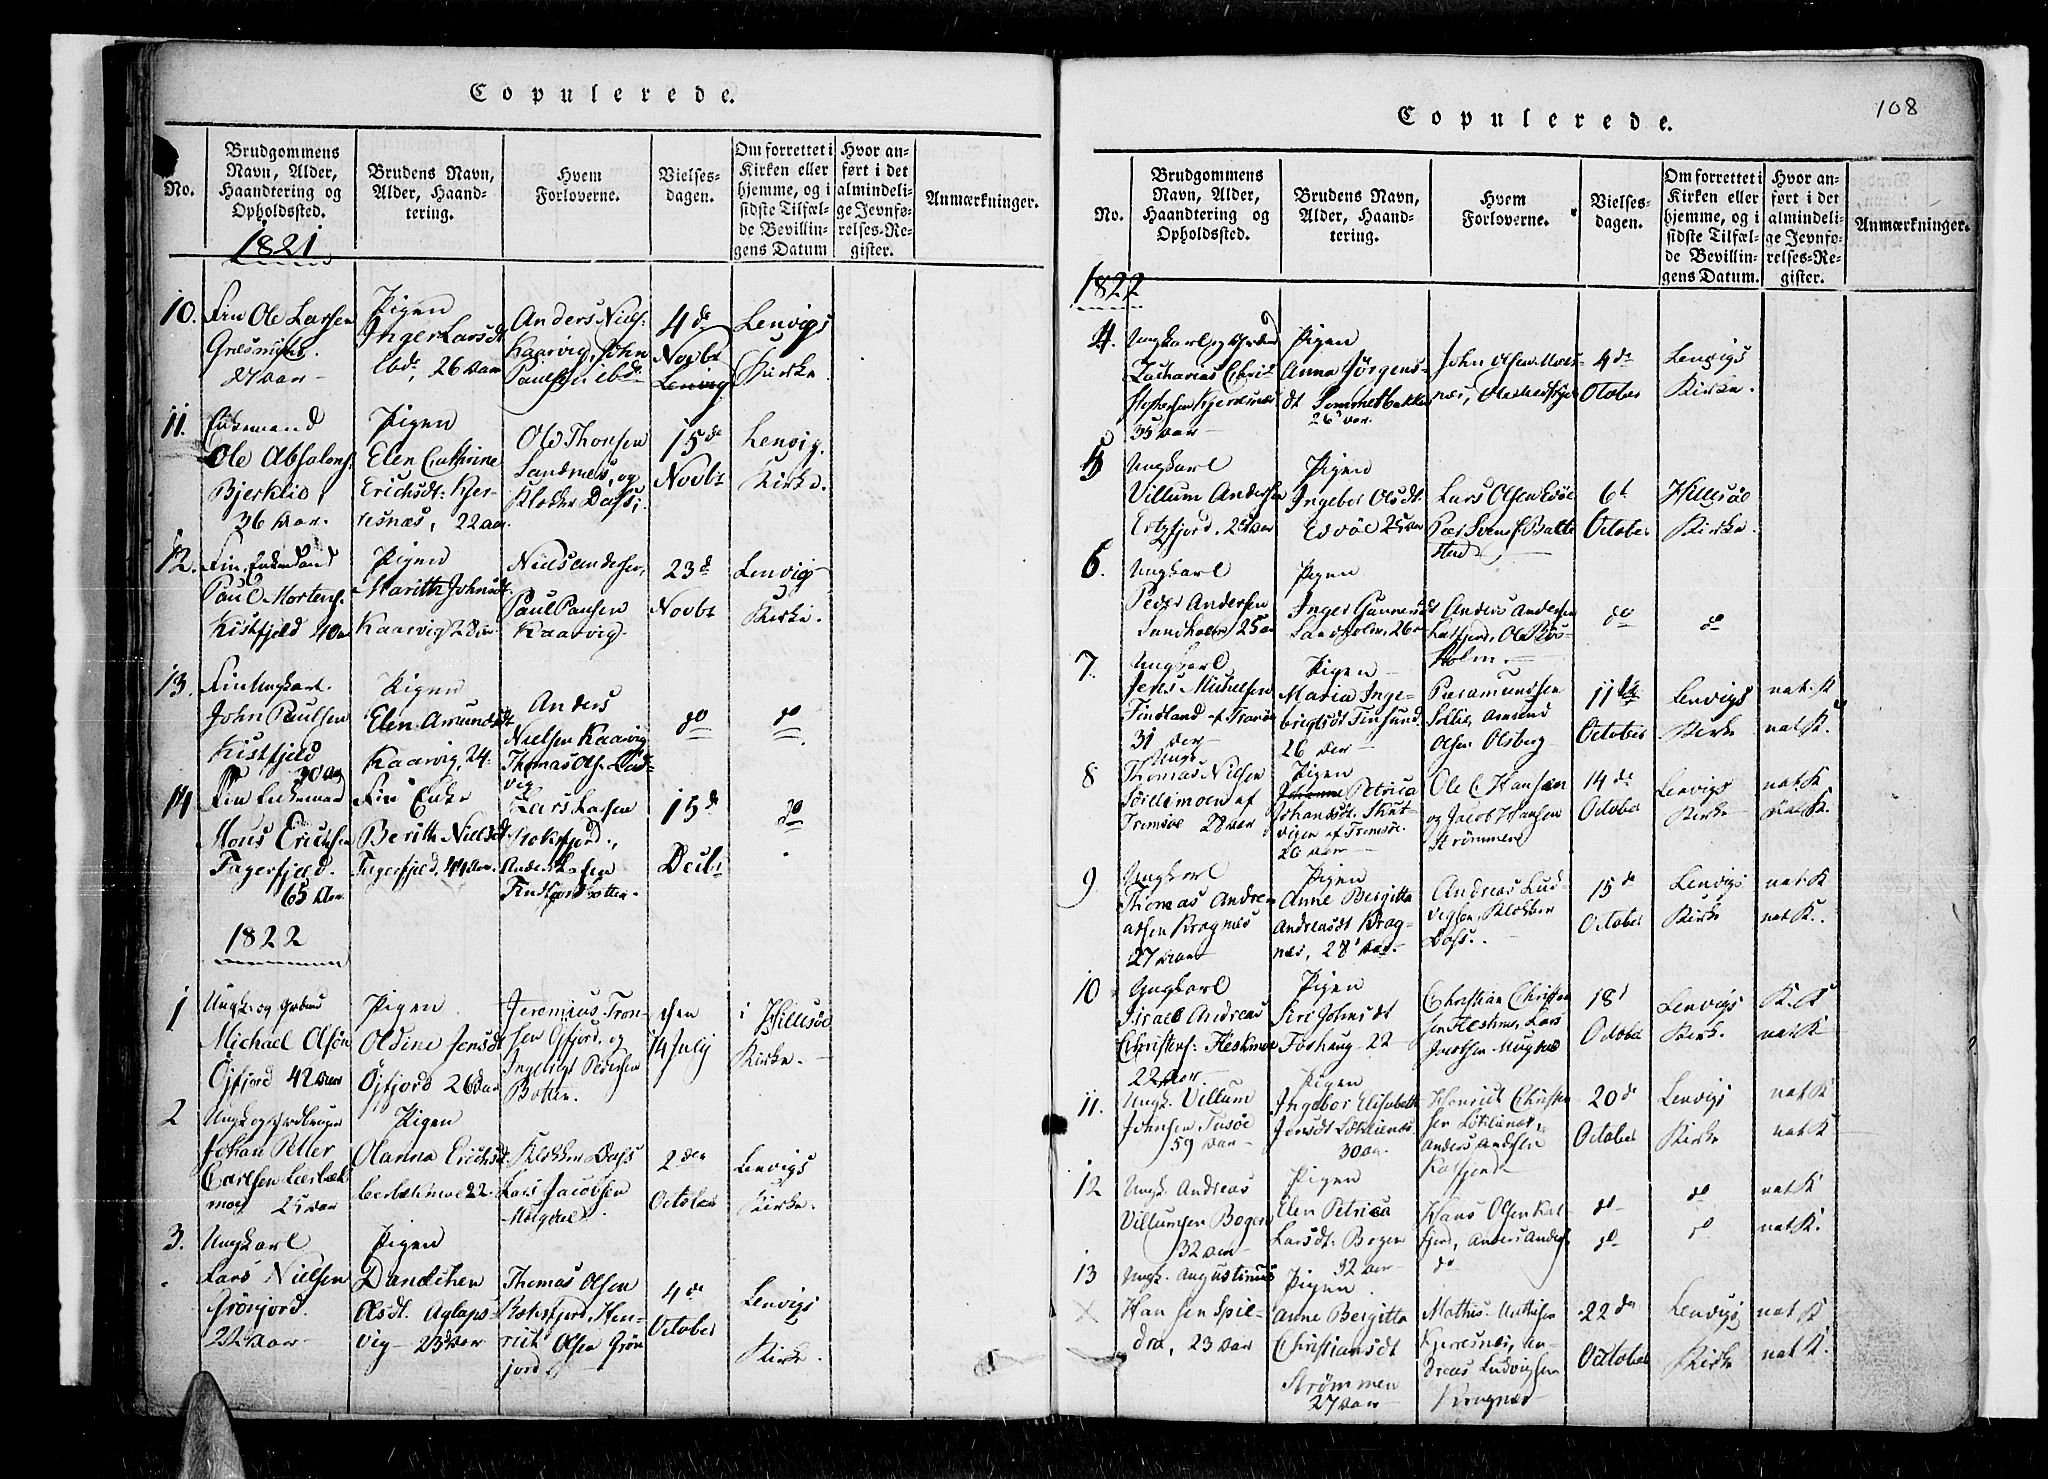 Copulerede.
No.
Brudgommens Navn, Alder, Haandtering og Opholdssted.
Brudens Navn, Alder, Haandtering.
Hvem Forloverne.
Vielsesdagen.
Om forrettet i Kirken eller hjemme, og i sidste Tilfælde Bevillingens Datum
Hvor anført i det almindelige Jevnførelses-Register.
Anmærkninger.
1821
10.
Fin Ole Larsen
27 Aar
Pigen
Inger Larsdt
ibd. 26 Aar
Anders Niels:
Kaarvig, John
Paulsen ibd.
4de
Novbr
Lenvig
Lenvigs
Kirke.
11.
Enkemand
Ole Absalons:
Bjerklie
36 Aar.
Pigen
Elen Cathrine
Erichsdt: Kjer-
resnæs, 22 aar.
Ole Thomsen
Sandnæs, og
Klokker Dass;
15de
Novbr
Lenvig.
Kirke.
12.
Fin. Enkemand
Paul Mortens:
Kistfjeld 40 a
Pigen
Marith Johnsdt
Kaarvig 28
Niels Andersen,
Paul Paulsen
Kaarvig.
23d
Novbr
Lenvig
Kirke.
13.
Fin Ungkarl.
John Paulsen
Kistfjeld
30 Aar
Pigen
Elen Amundsdt
Kaarvig, 24.
Anders
Nielsen Kaarvig
Thomas Ols:
vig
do
do
14
Fin Enkemand
Mons Erichsen
Fagerfjeld.
65 Aar
Fin Enke
Berith Nielsdt
Fagerfjeld, 44 Aar.
Lars Larsen
Anders Larsen
15de
Decbr
do
1822
1
Ungk. og
Michael Olsen
Øjfjord 42 Aar
Pigen
Oldine Jensdt
Øjfjord 26 Aar
Jeremias Tron-
sen Øjfjord, og
Ingebrigt Pedersen
Botten.
den
14 July
i Hillesøe
Kirke.
2
Ungk og
Johan Petter
Carlsen
moe 25 Aar
Pigen
Olanna Erichsdt.
22.
Klokker Dass
Lars Jacobsen
2den
October
Lenvigs
Kirke.
3.
Ungkarl
Lars Nielsen
Grönjord.
22 Aar
Pigen
Danelchen
Olsdt. Aglaps-
vig 23 Aar
Thomas Olsen
Hen-
rich Olsen Grön
jord
4de
October
Lenvigs
Kirke.
Copulerede.
108
No.
Brudgommens Navn, Alder, Haandtering og Opholdssted.
Brudens Navn, Alder, Haandtering.
Hvem Forloverne.
Vielsesdagen.
Om forrettet i Kirken eller hjemme, og i sidste Tilfælde Bevillingens Datum.
Hvor anført i det almindelige Jevnførelses-Register.
Anmærkninger.
1822
4.
Ungkarl og
Zacharias Chri-
Kjerresnæs
35 Aar
Pigen
Anna Jörgens-
dt
26 Aar.
John Olsen
4de
October
Lenvigs
Kirke.
5
Ungkarl
Villum Andersen
Ertzfjord, 25 Aar
Pigen
Ingebor Olsdt
Edöe 25 Aar
Lars Olsen Edöe
Peer Svends: Balte
stad
6t
October
Hillesöe
Kirke.
6.
Ungkarl
Peder Andersen
Sandholm 25 a
Pigen
Inger Gunnersdt
Sandholm, 26 a
Anders Andersen
holm.
do
do
7.
Ungkarl
Jens Michelsen
Findland af Tromsøe
31 Aar
Pigen
Maria Inge-
brigtsdt Finsund
26 Aar
Peer Amundsen
Sollie, Amund
Olsen Olsborg
11te
October
Lenvigs
Kirke
nat. K
nat K.
8
Ungk
Thomas Nielsen
Sörlimoen af
Tromsøe 28 Aar
Pigen
Johanne Petrica
Johansdt.
vigen af Tromsøe.
26 Aar
Ole C Hansen
og Jacob Hansen
Strömmen
14de
October
Lenvigs
Kirke
nat. K
nat K.
9
Ungkarl
Thomas Andre
assen Krognæs
27 Aar
Pigen
Anne Bergitta
Andreasdt Krog-
næs, 28 Aar
Andreas Lud-
vigsen, Klokker
Dass.
15de
October
Lenvigs
Kirke
nat. K
nat K.
10
Ungkarl
Israel Andreas
Christens: Heskmoe
22 Aar.
Pigen
Siri Johnsdt
Foshaug 22
Christian Christen
sen Heskmoe, Lars
18d
October
Lenvigs
Kirke.
K. K
nat K
11.
Ungk. Villum
Johnsen Tusöe
59 Aar
Pigen
Ingebor Elisabeth
Jensdt
30 a.
Henrich Christen
sen
Anders Andersen
20de
October
Lenvigs
Kirke
nat K
nat K
12
Ungk. Andreas
Villumsen Bogen
32 Aar
Pigen
Elen Petrica
Larsdt. Bogen
32 Aar
Hans Olsen Kat-
fjord, Anders Anders
do
do
do
do
do
nat K
nat K.
13
Ungk. Augustinus
Hansen Spil-
dra, 23 Aar
Pigen
Anne Bergitta
Christiansdt
Strömmen
27 Aar
Mathis Mathisen
Kjerresnæs, An-
dreas Ludvigsen
Krognæs
22de
October
Lenvigs
Kirke
nat K
nat K.